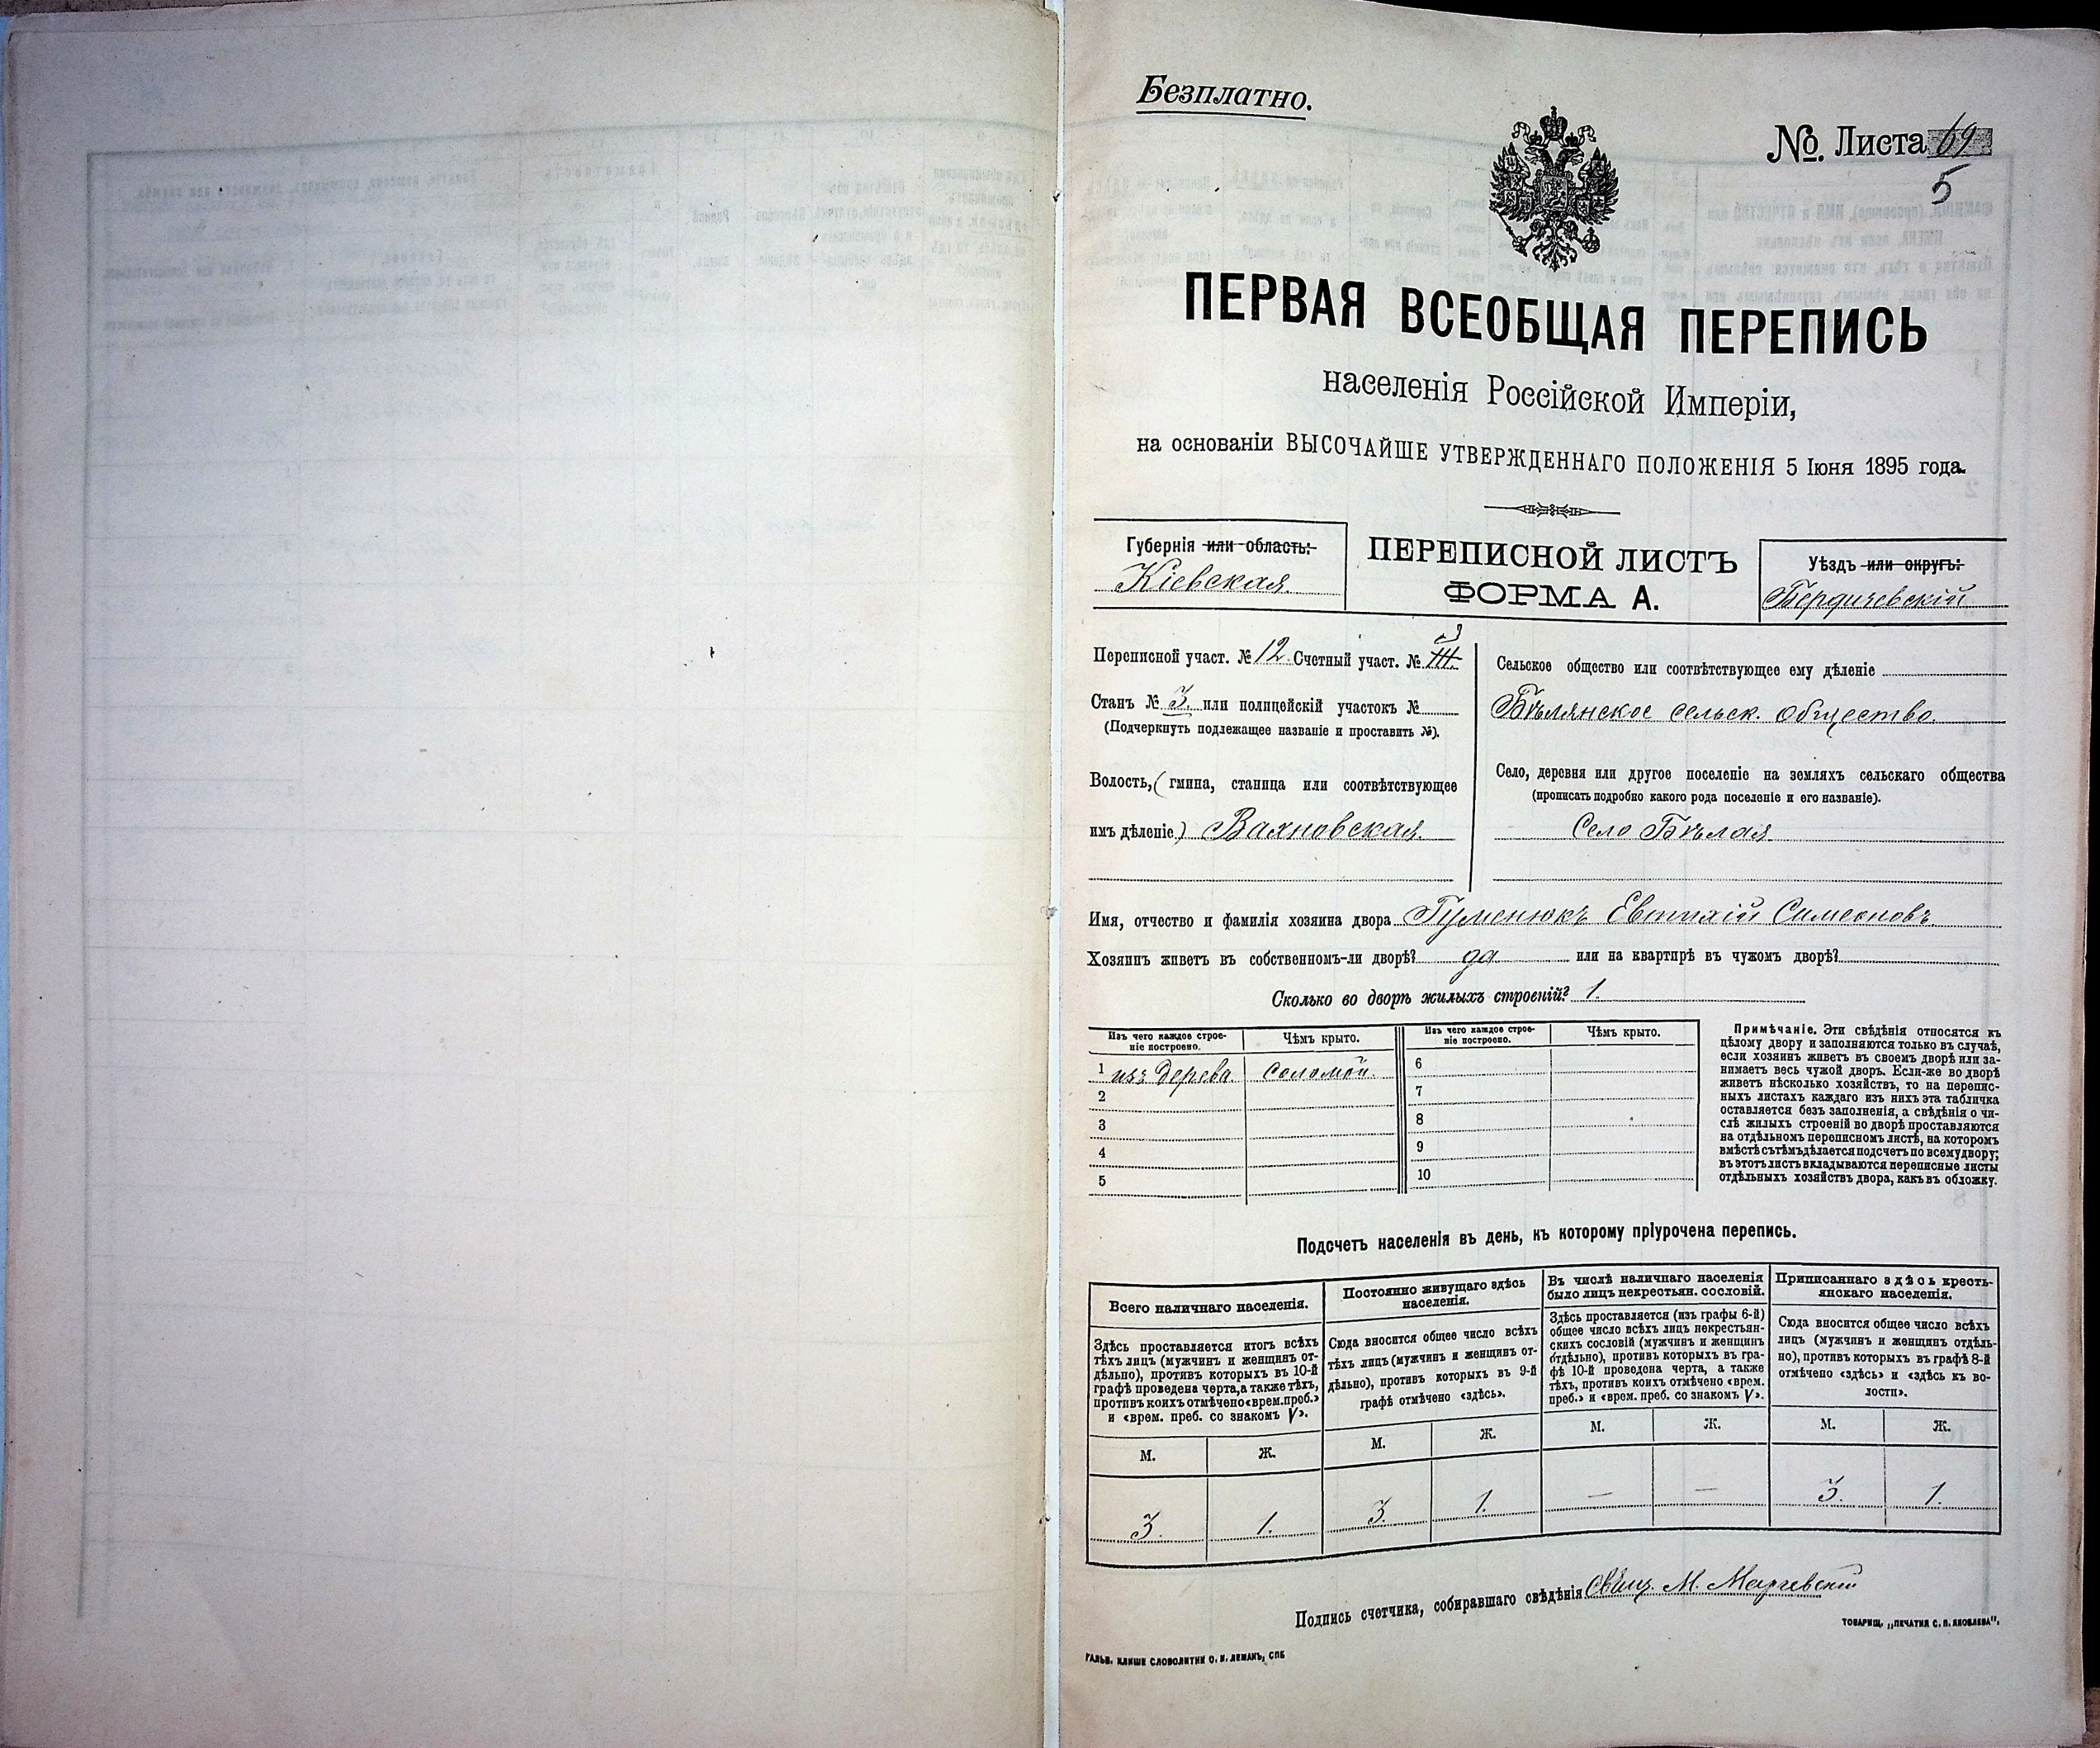 Безплатно.
№. Листа 69
5
ПЕРВАЯ ВСЕОБЩАЯ ПЕРЕПИСЬ
населенія Россійской Имперіи,
на основаніи ВЫСОЧАЙШЕ УТВЕРЖДЕННАГО ПОЛОЖЕНІЯ 5 Іюня 1895 года.
Губернія или область:
Кіевская.
ПЕРЕПИСНОЙ ЛИСТЪ
ФОРМА А.
Уѣздъ или округъ:
Бердичевскій
Переписной участ. № 12. Счетный участ. № III. 3
Станъ № 3. или полицейскій участокъ №
(Подчеркнуть подлежащее названіе и проставить №).
Волость, (гмина, станица или соотвѣтствующее
имъ дѣленіе) Вахновская.
Сельское общество или соотвѣтствующее ему дѣленіе
Бѣлянское сельск. общество.
Село, деревня или другое поселеніе на земляхъ сельскаго общества
(прописать подробно какого рода поселеніе и его названіе).
Село Бѣлая.
Имя, отчество и фамилія хозяина двора Гуменюкъ Евтихій Симеоновъ.
Хозяинъ живетъ въ собственномъ-ли дворѣ? да или на квартирѣ въ чужомъ дворѣ?
Сколько во дворѣ жилыхъ строеній? 1.
Изъ чего каждое строе-
ніе построено.
Чѣмъ крыто.
Изъ чего каждое строе-
ніе построено.
Чѣмъ крыто.
1 изъ дерева. соломой. 6
2 7
3 8
4 9
5 10
Примѣчаніе. Эти свѣдѣнія относятся къ
цѣлому двору и заполняются только въ случаѣ,
если хозяинъ живетъ въ своемъ дворѣ или за-
нимаетъ весь чужой дворъ. Если-же во дворѣ
живетъ нѣсколько хозяйствъ, то на перепис-
ныхъ листахъ каждаго изъ нихъ эта табличка
оставляется безъ заполненія, а свѣдѣнія о чи-
слѣ жилыхъ строеній во дворѣ проставляются
на отдѣльномъ переписномъ листѣ, на которомъ
вмѣстѣ съ тѣмъ дѣлается подсчетъ по всему двору;
въ этотъ листъ вкладываются переписные листы
отдѣльныхъ хозяйствъ двора, какъ въ обложку.
Подсчетъ населенія въ день, къ которому пріурочена перепись.
Всего наличнаго населенія.
Здѣсь проставляется итогъ всѣхъ
тѣхъ лицъ (мужчинъ и женщинъ от-
дѣльно), противъ которыхъ въ 10-й
графѣ проведена черта, а также тѣхъ,
противъ коихъ отмѣчено «врем. преб.»
и «врем. преб. со знакомъ V».
М. Ж.
3. 1.
Постоянно живущаго здѣсь
населенія.
Сюда вносится общее число всѣхъ
тѣхъ лицъ (мужчинъ и женщинъ от-
дѣльно), противъ которыхъ въ 9-й
графѣ отмѣчено «здѣсь».
М. Ж.
3. 1.
Въ числѣ наличнаго населенія
было лицъ некрестьян. сословій.
Здѣсь проставляется (изъ графы 6-й)
общее число всѣхъ лицъ некрестьян-
скихъ сословій (мужчинъ и женщинъ
отдѣльно), противъ которыхъ въ гра-
фѣ 10-й проведена черта, а также
тѣхъ, противъ коихъ отмѣчено «врем.
преб.» и «врем. преб. со знакомъ V».
М. Ж.
— —
Приписаннаго здѣсь кресть-
янскаго населенія.
Сюда вносится общее число всѣхъ
лицъ (мужчинъ и женщинъ отдѣль-
но), противъ которыхъ въ графѣ 8-й
отмѣчено «здѣсь» и «здѣсь къ во-
лости».
М. Ж.
3. 1.
Подпись счетчика, собиравшаго свѣдѣнія М.
ТОВАРИЩ. „ПЕЧАТНЯ С. П. ЯКОВЛЕВА“.
ГАЛЬВ. КЛИШЕ СЛОВОЛИТНИ О. И. ЛЕМАНЪ, СПБ